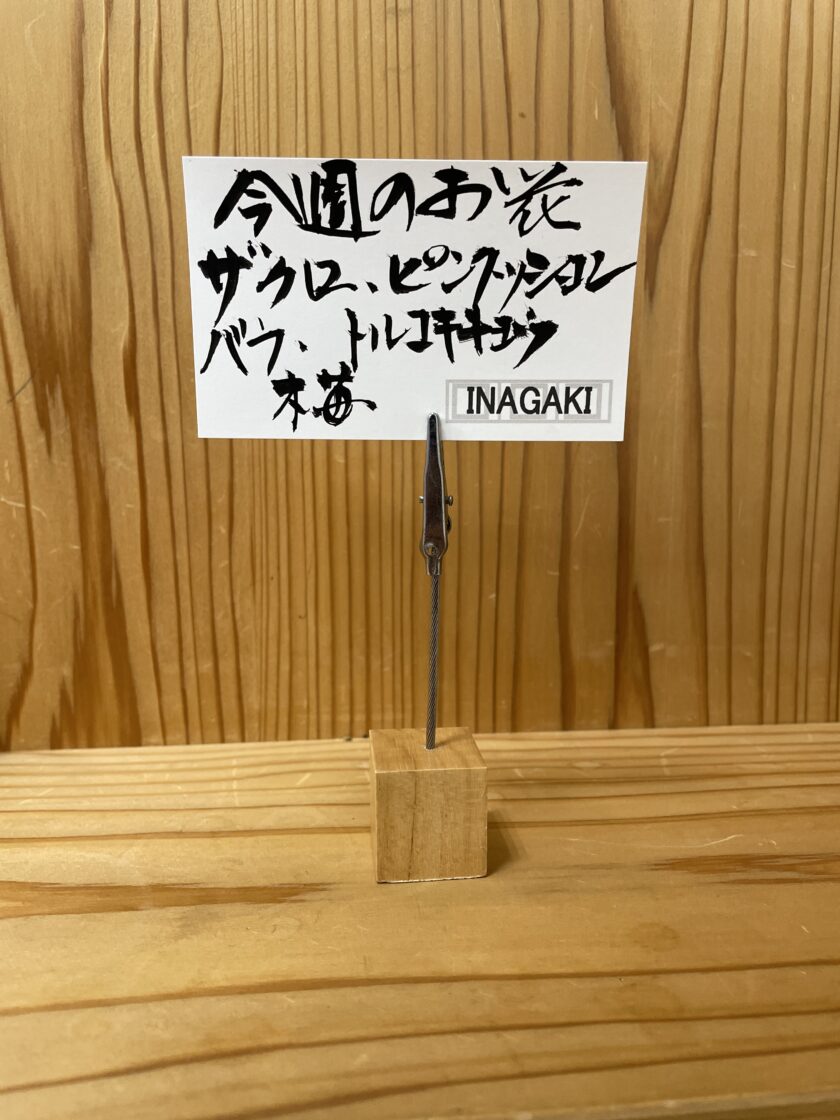 今週のお花
ザクロ、ピンクッション
バラ、トルコキキョウ
木苺
INAGAKI